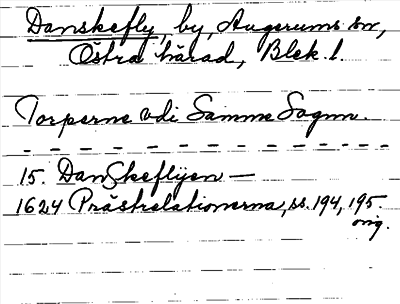 Danskefly, by, Augerums sn,
Östra härad, Blek. l.
Torperne vdi Samme Sognn.
15. DanSkeflijen —
1624 Prästrelationerna, ss. 194, 195.
orig.